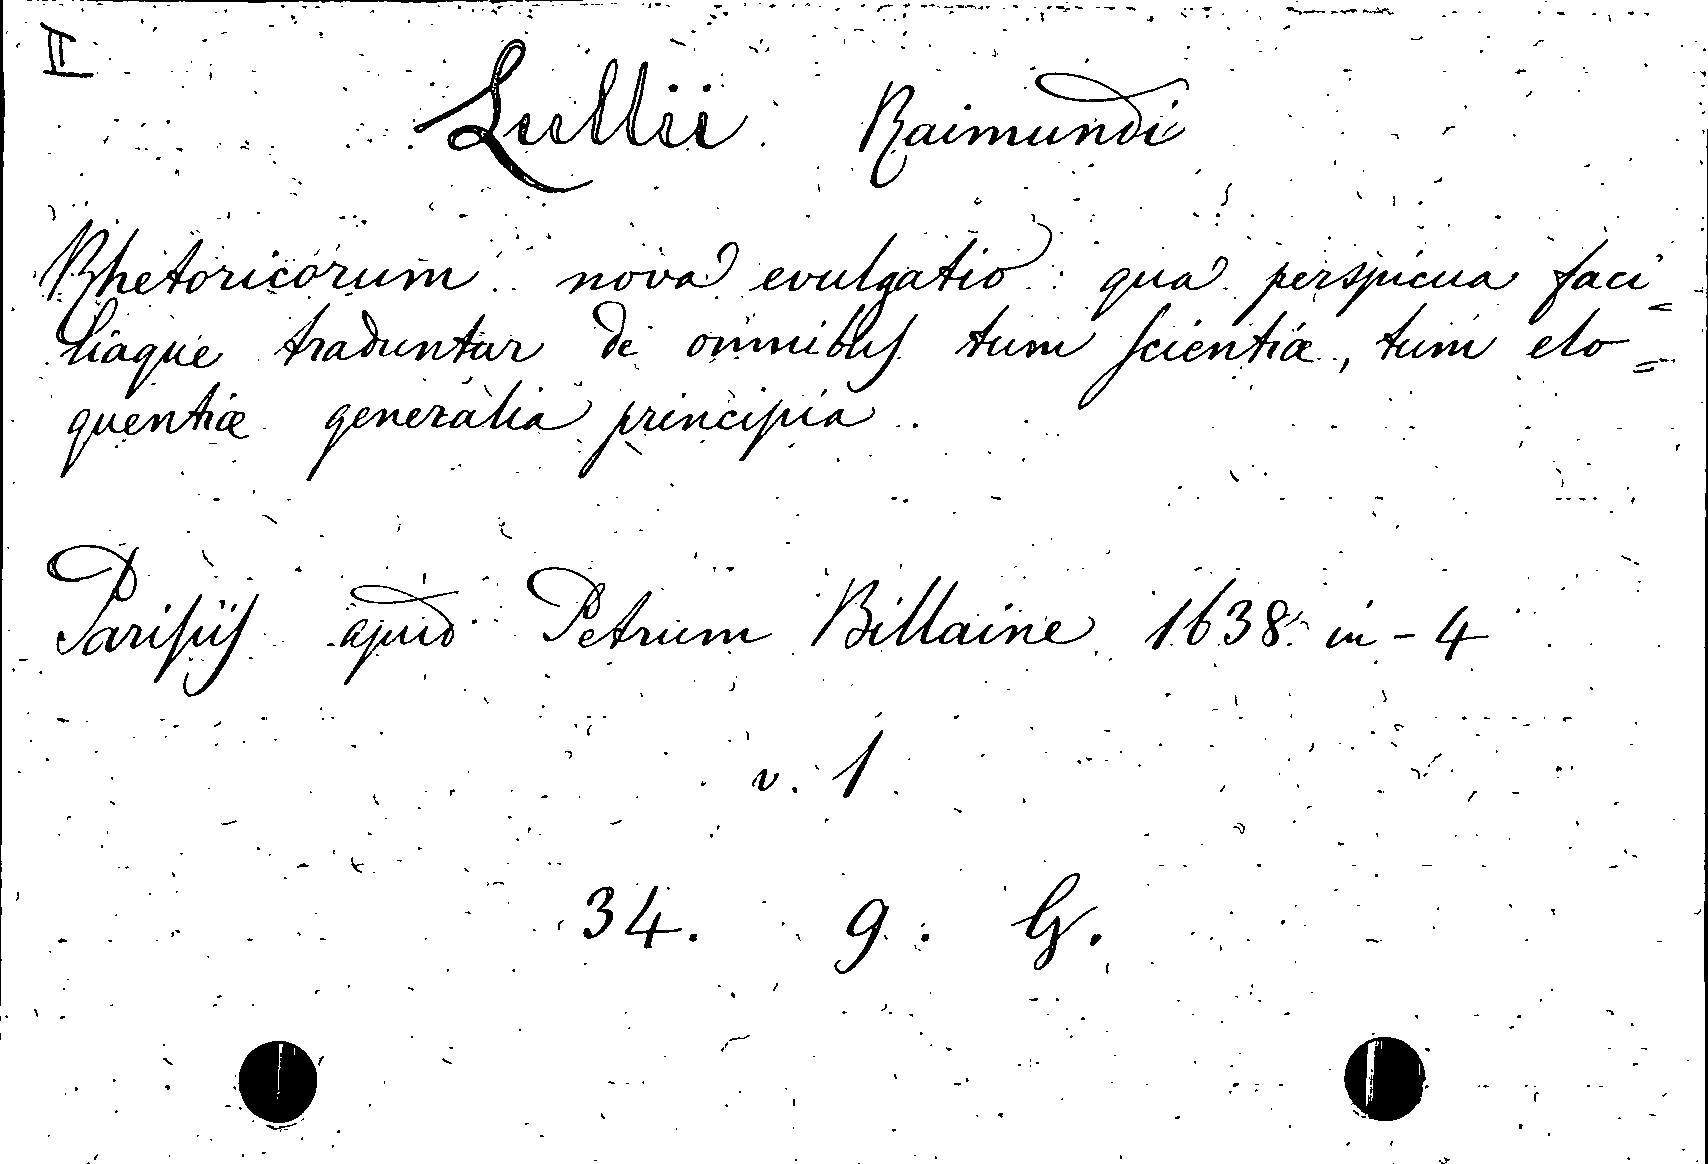 II
Lullii Raimundi
Rhetoricorum nova evulgatio : qua perspicua faci=
liaque traduntur de omnibus tum scientiæ, tum elo=
quentiæ generalia principia.
Parisiis apud Petrum Billaine 1638 in-4
v. 1
34. 9. G.